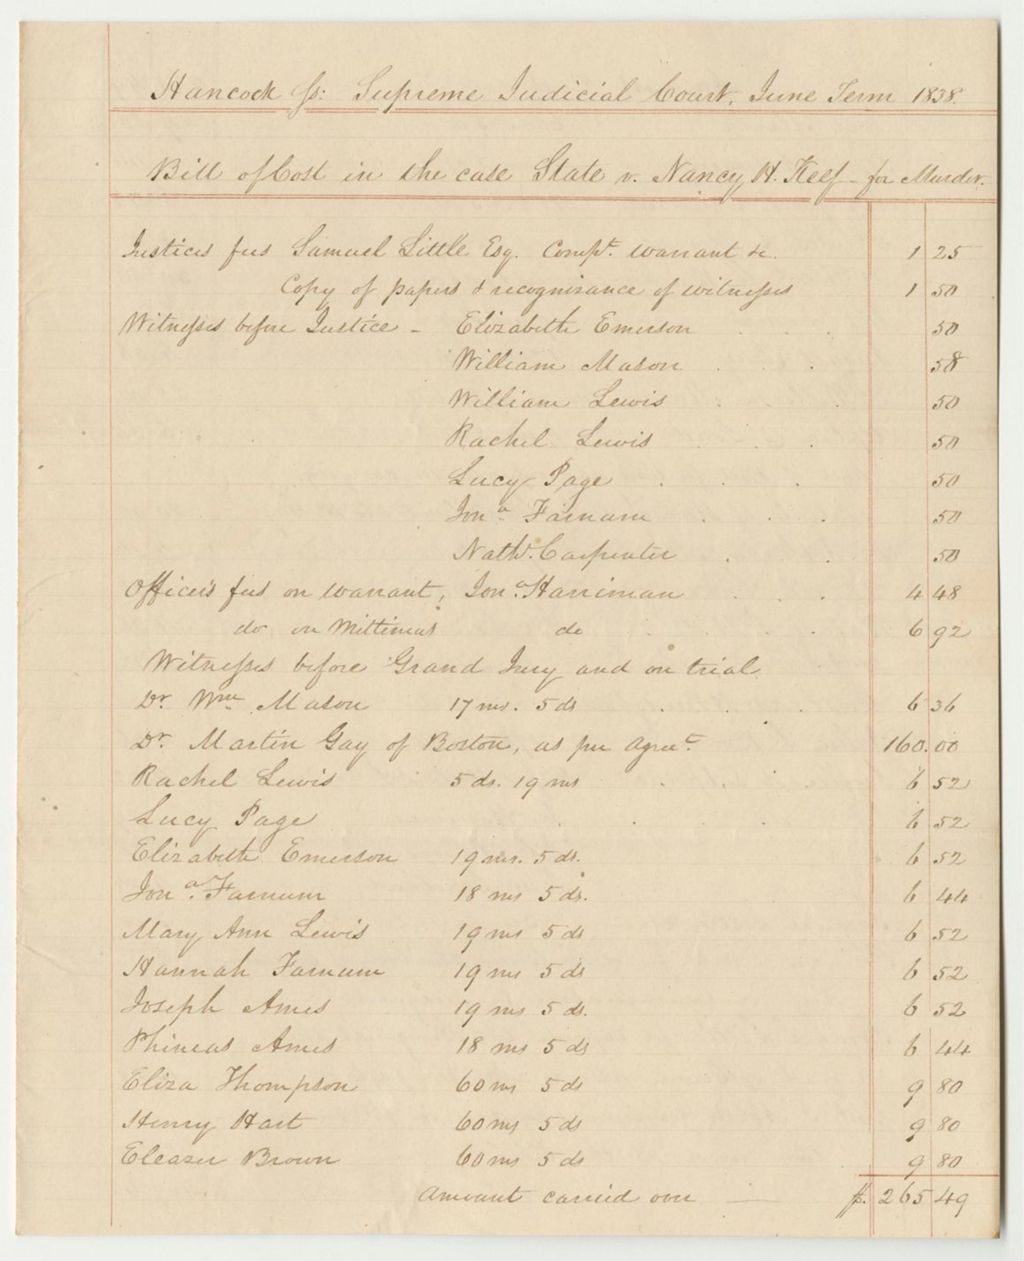 Hancock ss: Supreme Judicial Court, June Term 1838.
Bill of Cost in the case State v. Nancy H. Keef - for Murder.
Justices fees Samuel Little Esq. Compt. warrant &c. 1 25
Copy of papers & recognizance of witnesses 1 50
Witnesses before Justice - Elizabeth Emerson 50
William Mason 58
William Lewis 50
Rachel Lewis 50
Lucy Page 50
Jona. Farnum 50
Nathl. Carpenter 50
Officers fees on warrant, Jona. Harriman 4 48
do on Mittimus do 6 92
Witnesses before Grand Jury and on trial
Dr. Wm. Mason 17 ms. 5 ds 6 36
Dr. Martin Gay of Boston, as per agreet. 160.00
Rachel Lewis 5 ds. 19 ms 6 52
Lucy Page 6 52
Elizabeth Emerson 19 ms. 5 ds. 6 52
Jona. Farnum 18 ms 5 ds. 6 44
Mary Ann Lewis 19 ms 5 ds 6 52
Hannah Farnum 19 ms 5 ds 6 52
Joseph Ames 19 ms 5 ds. 6 52
Phineas Ames 18 ms 5 ds 6 44
Eliza Thompson 60 ms 5 ds 9 80
Henry Hart 60 ms 5 ds 9 80
Eleazer Brown 60 ms 5 ds 9 80
Amount carried over $. 265 49